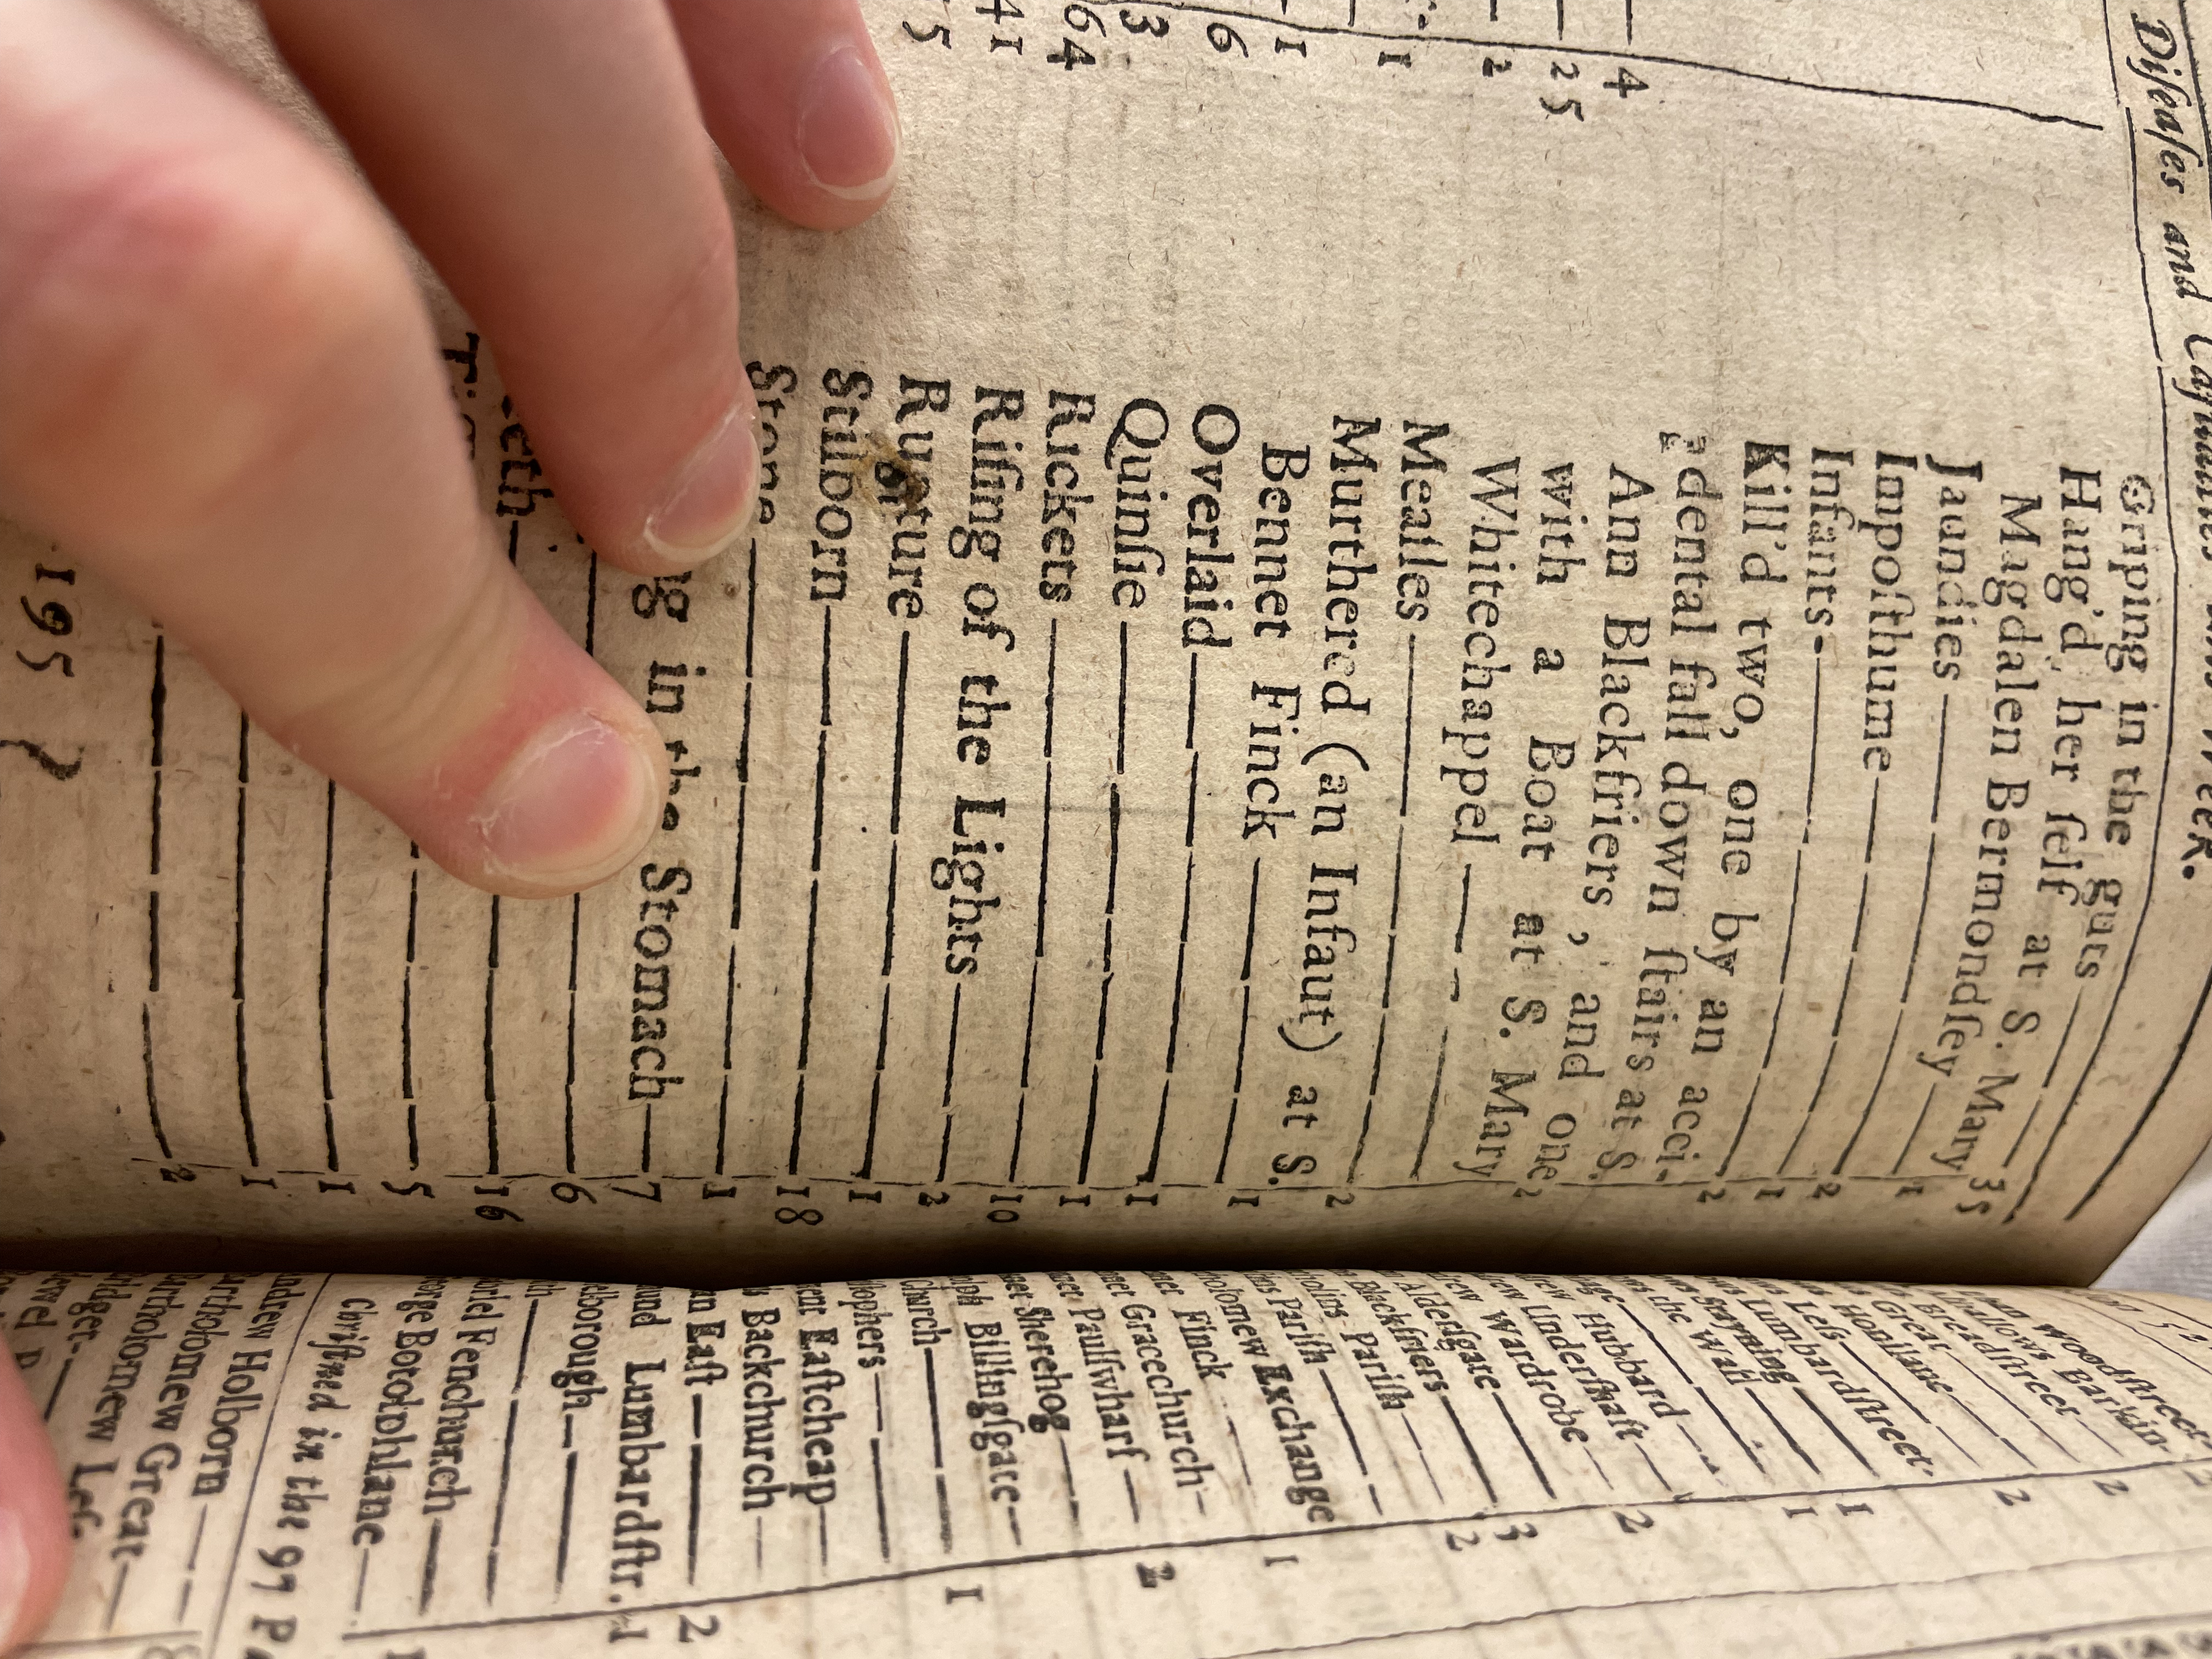 Diſeaſes and
4
25
2
1
1
6
3
64
41
5
Griping in the guts 35
Hang'd her ſelf at S. Mary
Magdalen Bermondſey 1
Jaundies 2
Impoſthume 1
Infants 2
Kill'd two, one by an acci-
dental fall down ſtairs at S.
Ann Blackfriers, and one
with a Boat at S. Mary
Whitechappel 2
Meaſles 2
Murthered (an Infaut) at S.
Bennet Finck 1
Overlaid 1
Quinſie 1
Rickets 10
Riſing of the Lights 2
Rupture 1
Stilborn 18
Stone 1
ng in the Stomach 7
6
eeth 16
5
1
1
2
195
Woodſtreet
allows Barkin 2
Breadſtreet
Great 2
Honilane
Leſs
Lumbardſtreet 1
Stayning 1
the Wall
Hubbard 2
Underſhaft
Wardrobe
Alderſgate 3
Blackfriers 2
Pariſh
Pariſh
olomew Exchange 1
Finck
Gracechurch
Paulſwharf 2
Sherehog
Billingſgate
Church 1
lophers
ent Eaſtcheap
Backchurch
Eaſt 2
und Lumbardſtr. 1
lborough
riel Fenchurch
orge Botolphlane
Chriſtned in the 97 P
ndrew Holborn
artholomew Great
artholomew Leſ.
ridget